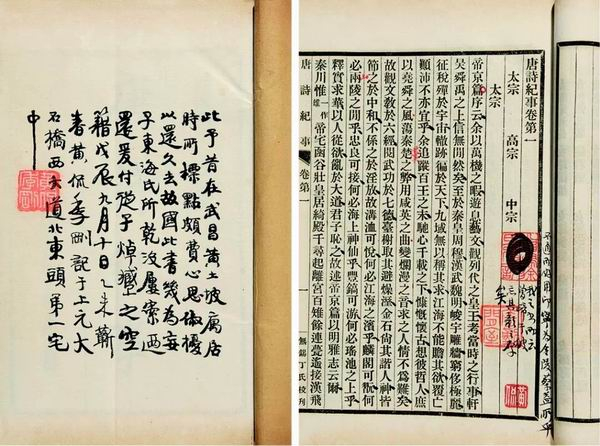 此予昔在武昌黄土坡寓居
時所標點頗費心思俶擾
以還久去故國此書幾為妄
子東海氏所乾没屬寮迺
還爰付從子焯藏之空
籍戊辰九月十日乙未蘄
春黄侃季剛記于上元大
石橋西大道北東頭第一宅
中
唐詩紀事卷第一
太宗 高宗 中宗
太宗
帝京篇序云余以萬機之暇遊息藝文觀列代之皇王考當時之行事軒
昊舜禹之上信無間然矣至於秦皇周穆漢武魏明峻宇雕牆窮侈極麗
征稅殫於宇宙轍跡徧於天下九域無以稱其求江海不能贍其欲覆亡
顛沛不亦宜乎余追蹤百王之末馳心千載之下慷慨懷古想彼哲人庶
以堯舜之風蕩秦楚之弊用咸英之曲變爛漫之音求之人情不為難矣
故觀文教於六經閱武功於七德臺榭取其避燥溼金石尚其諧人神皆
節之於中和不係之於淫放溝洫可悅何必江海之濱乎麟閣可翫何
必兩陵之間乎忠良可接何必海上神仙乎豐鎬可游何必瑤池之上乎
釋實求華以人從欲亂於大道君子恥之故述帝京篇以明雅志云爾
秦川惟一作雄帝宅函谷壯皇居綺殿千尋起離宮百雉餘連甍遙接漢飛
唐詩紀事 卷第一
無錫丁氏校刊